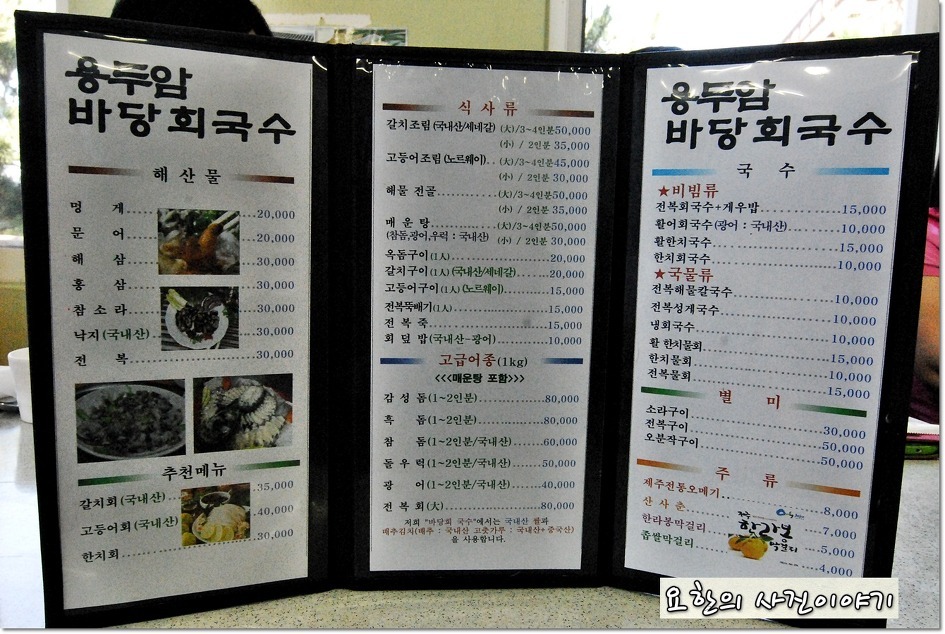 용두암
바당회국수
해산물
멍 게 20,000
문 어 20,000
해 삼 30,000
홍 삼 30,000
참소라 30,000
낙지(국내산) 30,000
전 복 30,000
추천메뉴
갈치회(국내산) 35,000
고등어회(국내산) 40,000
한치회 30,000
식사류
갈치조림(국내산/세네갈) (大)/3~4인분50,000
(小) / 2인분 35,000
고등어조림(노르웨이) (大)/3~4인분45,000
(小) / 2인분 30,000
해물 전골 (大)/3~4인분50,000
(小) / 2인분 35,000
매 운 탕 (大)/3~4인분50,000
(참돔,광어,우럭 : 국내산) (小) / 2인분 30,000
옥돔구이(1人) 20,000
갈치구이(1人)(국내산/세네갈) 20,000
고등어구이(1人)(노르웨이) 15,000
전복뚝배기(1人) 15,000
전 복 죽 15,000
회 덮 밥(국내산-광어) 10,000
고급어종(1kg)
<<<매운탕 포함>>>
감 성 돔(1~2인분) 80,000
흑 돔(1~2인분) 80,000
참 돔(1~2인분/국내산) 60,000
돌 우 럭(1~2인분/국내산) 50,000
광 어(1~2인분/국내산) 40,000
전 복 회(大) 80,000
저희 "바당회 국수"에서는 국내산 쌀과
배추김치(배추 : 국내산 고춧가루 : 국내산+중국산)
을 사용합니다.
용두암
바당회국수
국 수
★비빔류
전복회국수+게우밥 15,000
활어회국수(광어 : 국내산) 10,000
활한치국수 15,000
한치회국수 10,000
★국물류
전복해물칼국수 10,000
전복성게국수 10,000
냉회국수 10,000
활 한치물회 15,000
한치물회 10,000
전복물회 15,000
별 미
소라구이 30,000
전복구이 50,000
오분작구이 50,000
주 류
제주전통오메기 8,000
산 사 춘 7,000
한라봉막걸리 5,000
좁쌀막걸리 4,000
요한의 사진이야기